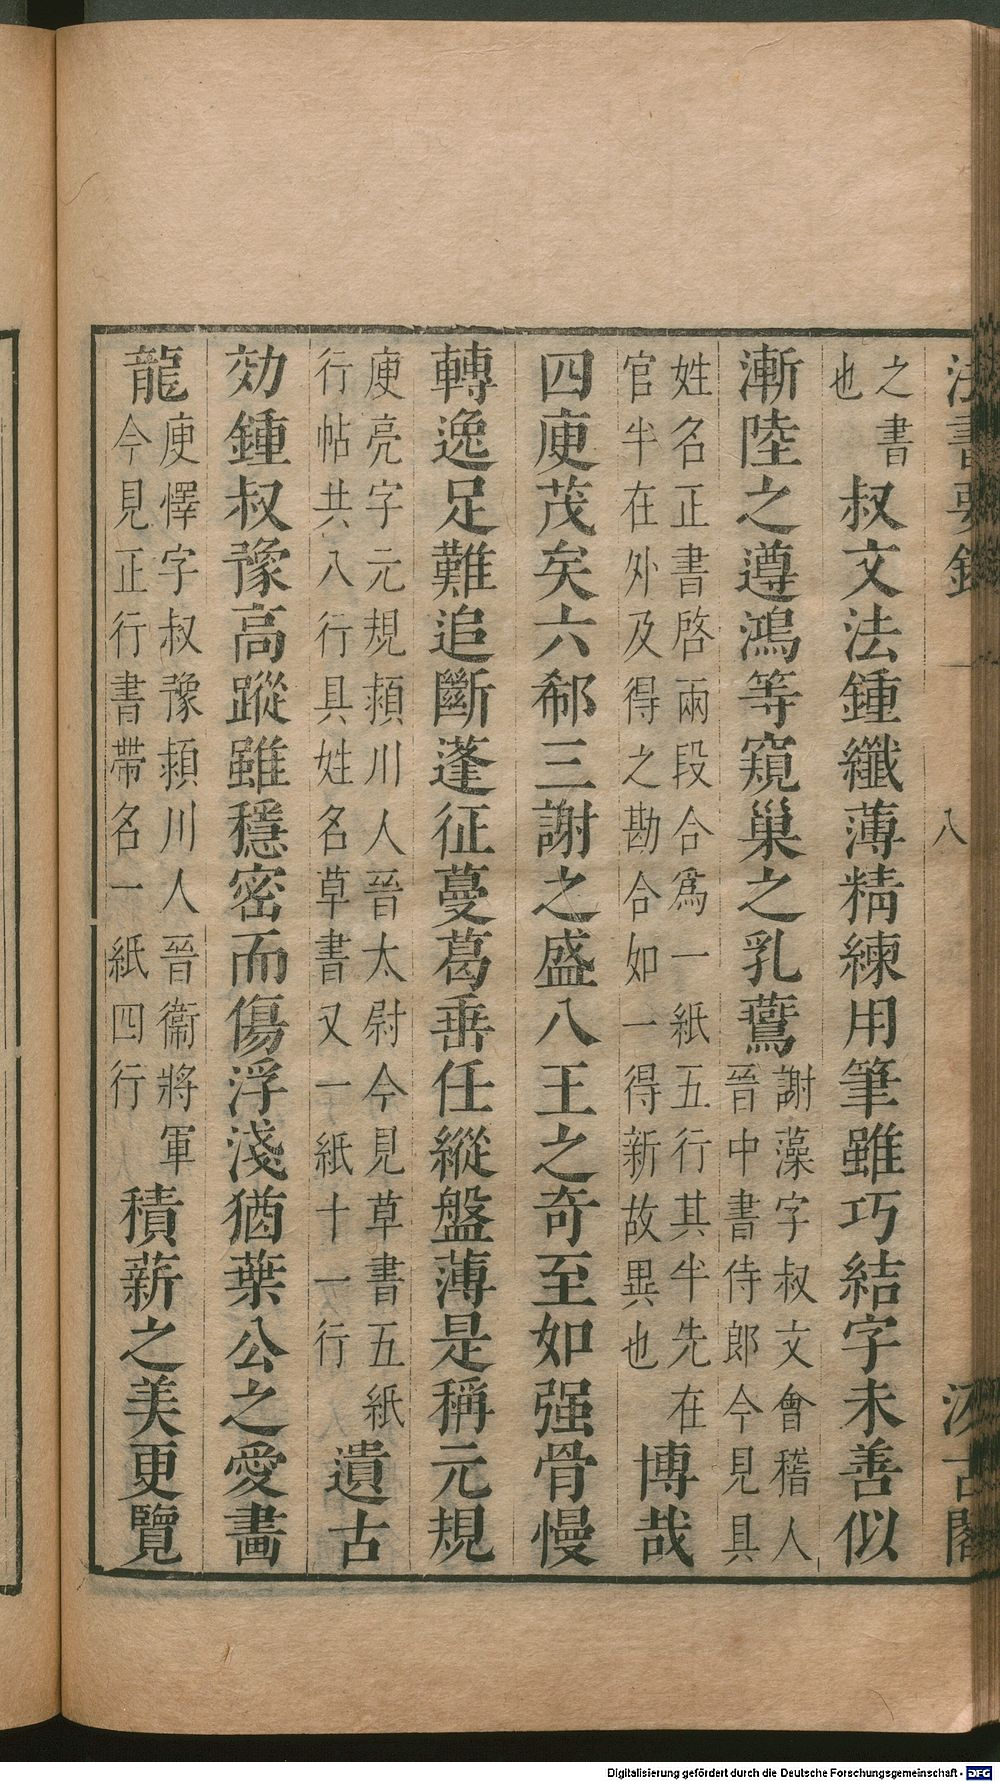 法書要錄
八
汲古閣
之書
也
叔文法鍾纖薄精練用筆雖巧結字未善似
漸陸之遵鴻等窺巢之乳鷰
謝藻字叔文會稽人
晉中書侍郎今見具
姓名正書啓兩段合爲一紙五行其半先在
官半在外及得之勘合如一得新故異也
博哉
四庾茂矣六郗三謝之盛八王之奇至如强骨慢
轉逸足難追斷蓬征蔓葛垂任縱盤薄是稱元規
庾亮字元規潁川人晉太尉今見草書五紙
行帖共八行具姓名草書又一紙十一行
遺古
効鍾叔豫高蹤雖穩密而傷浮淺猶葉公之愛畫
龍
庾懌字叔豫潁川人晉衞將軍
今見正行書帶名一紙四行
積薪之美更覽
Digitalisierung gefördert durch die Deutsche Forschungsgemeinschaft - DFG